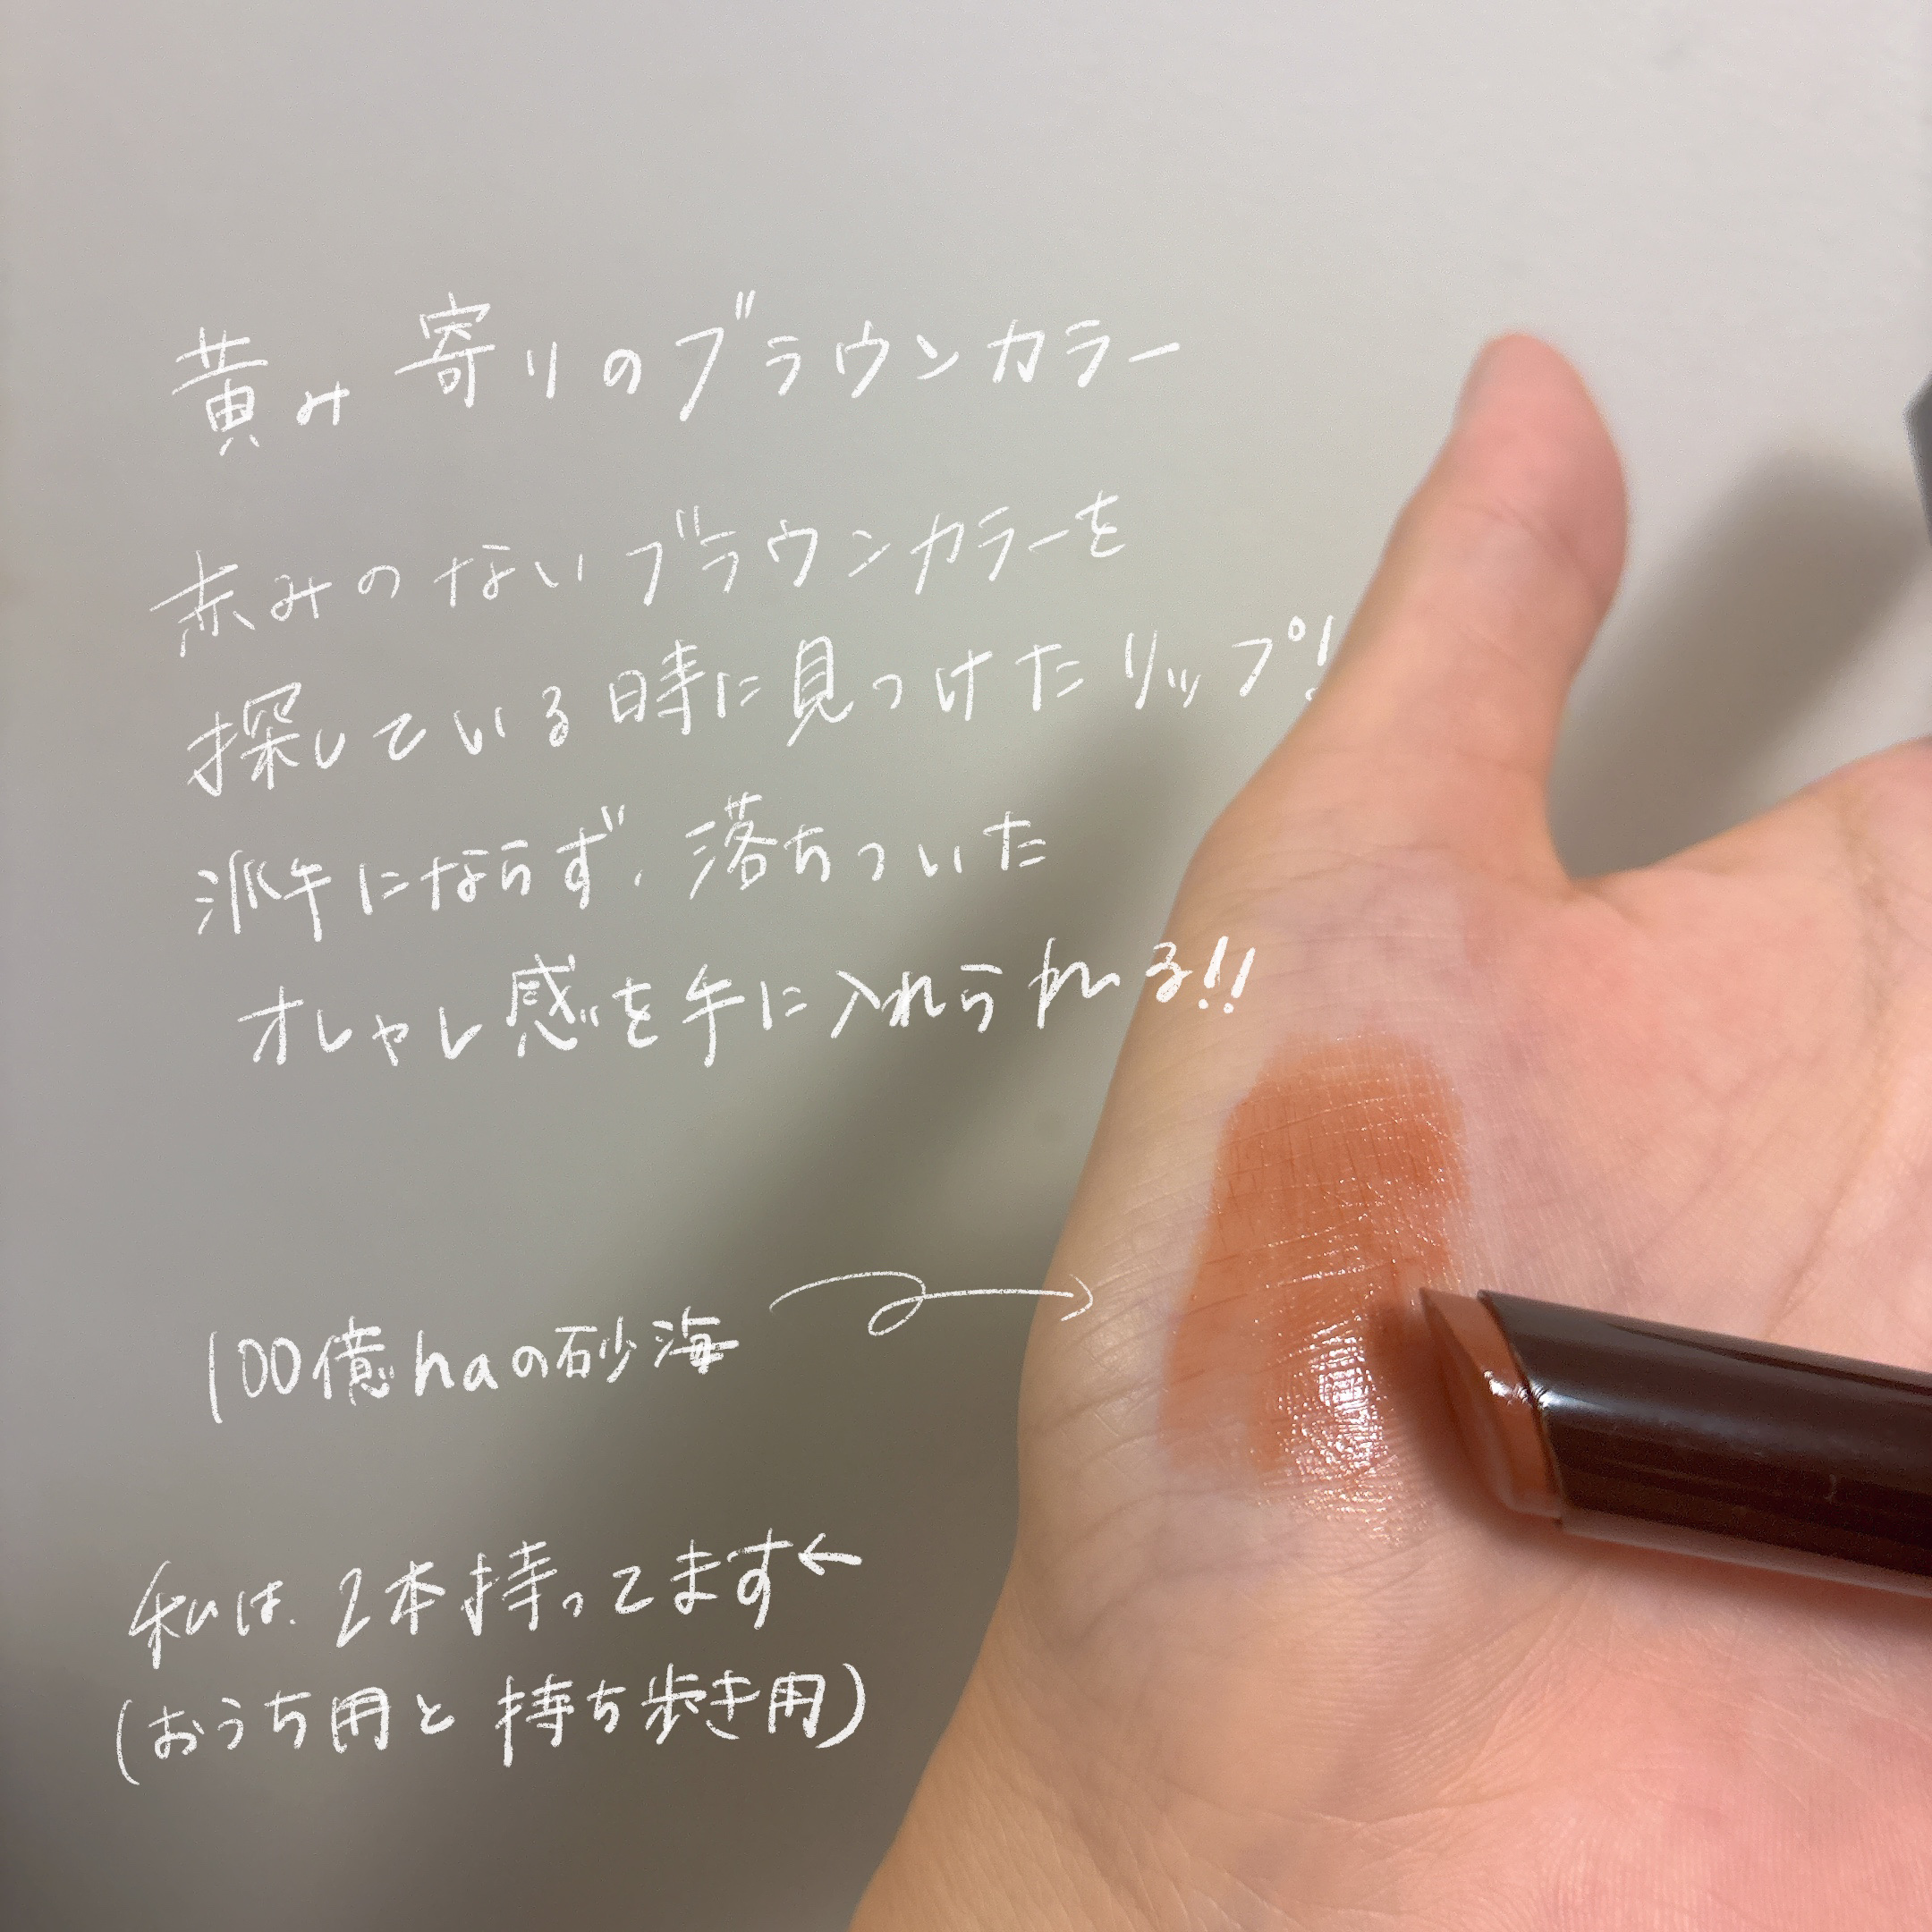 黄み寄りのブラウンカラー
赤みのないブラウンカラーを
探している時に見つけたリップ!
派手にならず、落ちついた
オシャレ感を手に入れられる!!
100億haの砂海
私は、2本持ってます←
(おうち用と持ち歩き用)